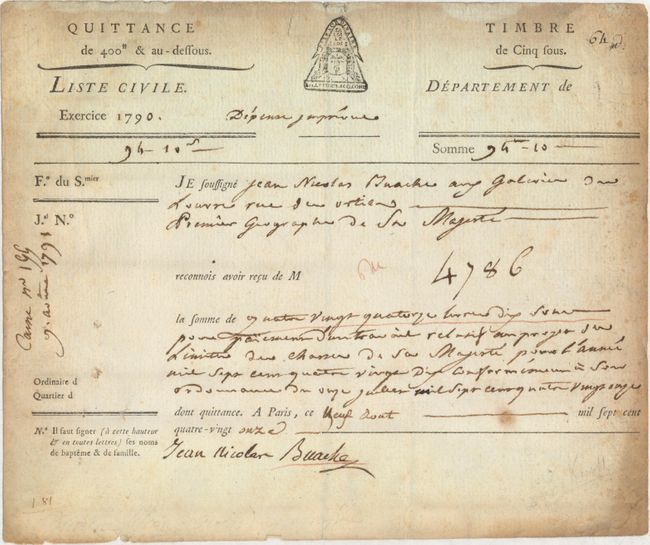 QUITTANCE
de 400ᵗᵗ & au-dessous.
TIMBRE
de Cinq sous.
LISTE CIVILE.
Exercice 1790.
Dépense imprévue
DÉPARTEMENT de
94 - 10ˢ
Somme 94ᵗᵗ - 10
F.º du S.mier
J.al N.º
Caisse nº 199
9. aout 1791
JE soussigné Jean Nicolas Buache aux Galeries du
Louvre rue des orties
Premier Geographe de Sa Majesté
reconnois avoir reçu de M
4786
la somme de quatre vingt quatorze livres dix sous
pour paiement d'un travail relatif au projet des
Limites des chasses de Sa Majesté pour l'année
mil sept cent quatre vingt dix conformement à son
ordonnance du onze juillet mil sept cent quatre vingt onze
dont quittance. A Paris, ce Neuf Aout mil sept cent
quatre-vngt onze
Ordinaire d
Quartier d
N.ª Il faut signer (à cette hauteur
& en toutes lettres) ses noms
de baptême & de famille.
Jean Nicolas Buache
1.81